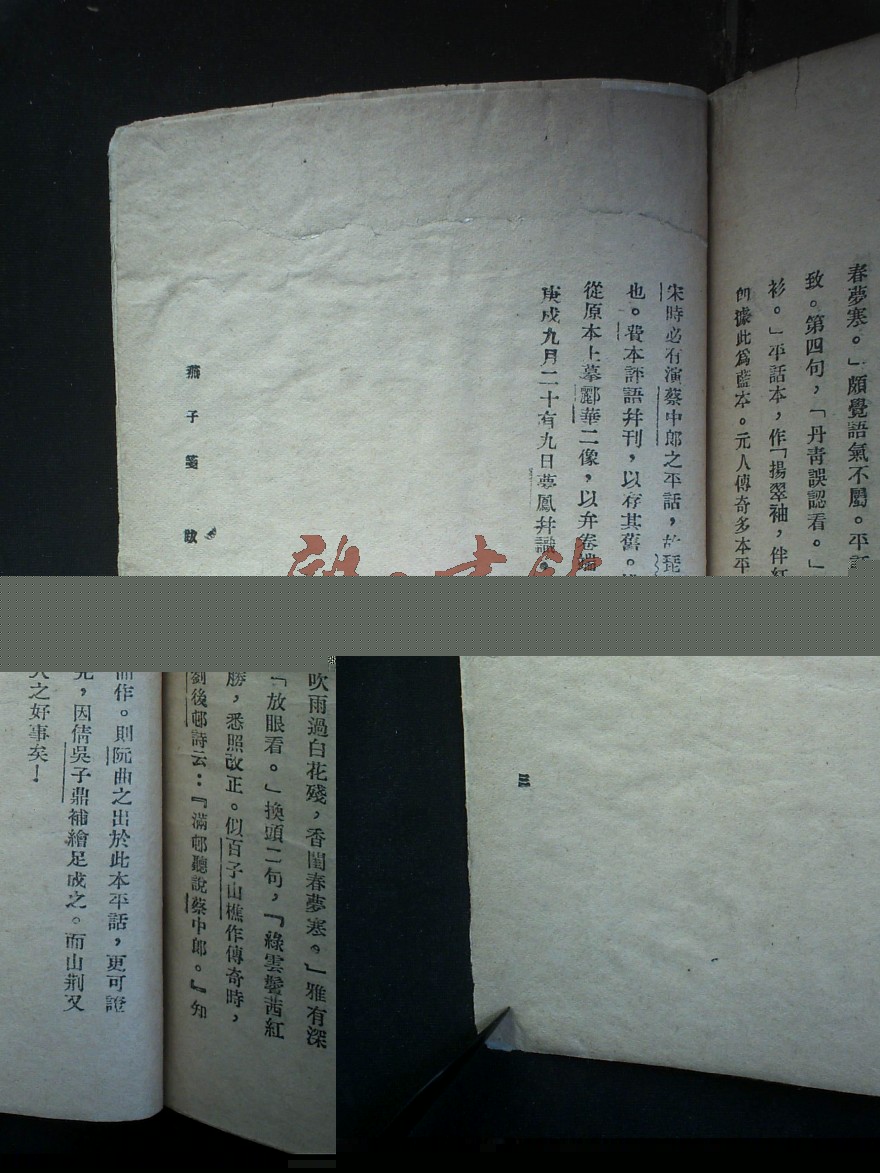 春夢寒。」頗覺語氣不屬。平話
致。第四句，「丹青誤認看。」
衫。」平話本，作「揚翠袖，伴紅
卽據此爲藍本。元人傳奇多本平
宋時必有演蔡中郎之平話，故琵
也。費本評語幷刊，以存其舊。
從原本上摹酈華二像，以弁卷端
庚戌九月二十有九日夢鳳幷識。
燕子箋 跋
吹雨過白花殘，香閨春夢寒。」雅有深
「放眼看。」換頭二句，「綠雲鬟茜紅
勝，悉照改正。似百子山樵作傳奇時，
劉後邨詩云：『滿邨聽說蔡中郎。』知
而作。則阮曲之出於此本平話，更可證
，因倩吳子鼎補繪足成之。而山荆又
之好事矣！
三